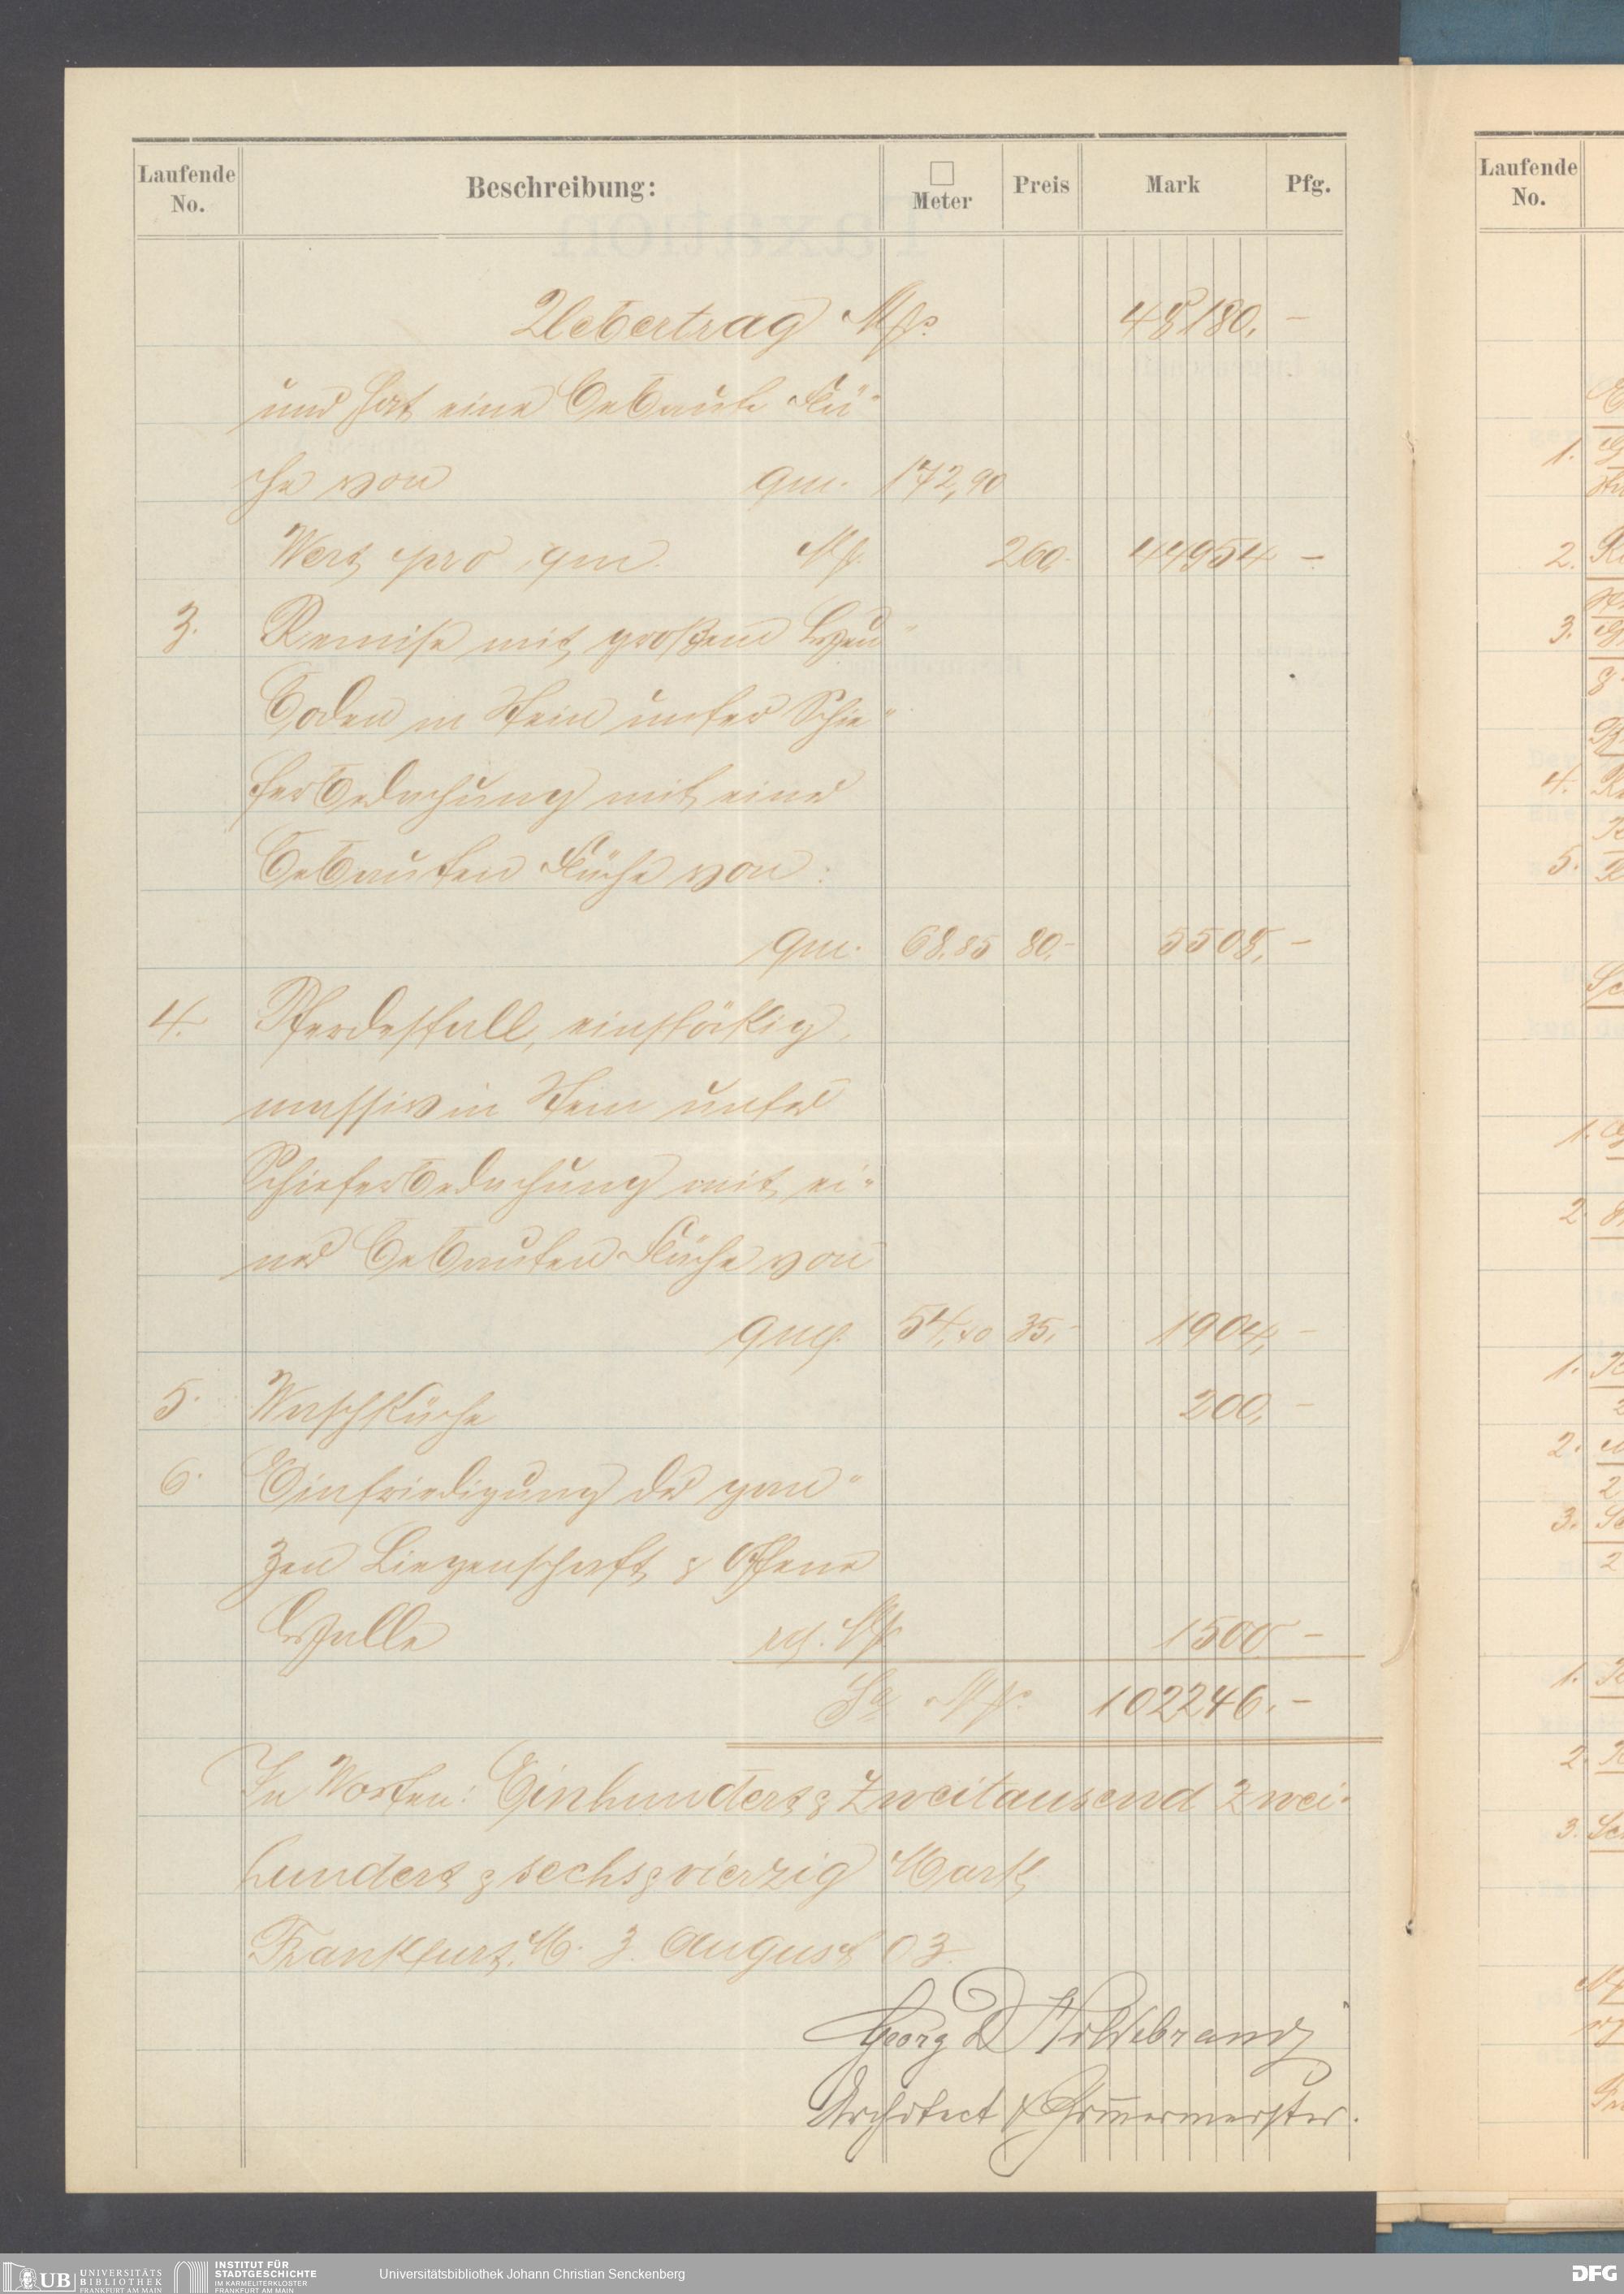 Laufende No. Beschreibung: □ Meter Preis Mark Pfg.
Uebertrag Mk. 48180,–
und hat eine bebaute Flä-
che von qm. 172,90
Wert pro qm. Mk. 260,- 44954 –
3. Remise mit großem Heu-
boden in Stein unter Schie-
ferbedachung mit einer
bebauten Fläche von:
qm. 68,85 80,- 5508,–
4. Pferdestall, einstöckig,
massiv in Stein unter
Schieferbedachung mit ei-
ner bebauten Fläche von
qm. 54,40 35,- 1904,–
5. Waschküche 200,–
6. Einfriedigung der gan-
zen Liegenschaft & offene
Halle Mk. 1500 –
Sa Mk. 102246,–
In Worten: Einhundert & zweitausend zwei-
hundert & sechs & vierzig Mark
Frankfurt. M. 3. August 03.
Georg D Hildebrand
Architect & Zim̄ermeister.
Laufende No.
1.
2.
3.
4.
5.
1.
2
1.
2.
3.
1.
2.
3.
UB UNIVERSITÄTS BIBLIOTHEK FRANKFURT AM MAIN
INSTITUT FÜR STADTGESCHICHTE IM KARMELITERKLOSTER FRANKFURT AM MAIN
Universitätsbibliothek Johann Christian Senckenberg
DFG